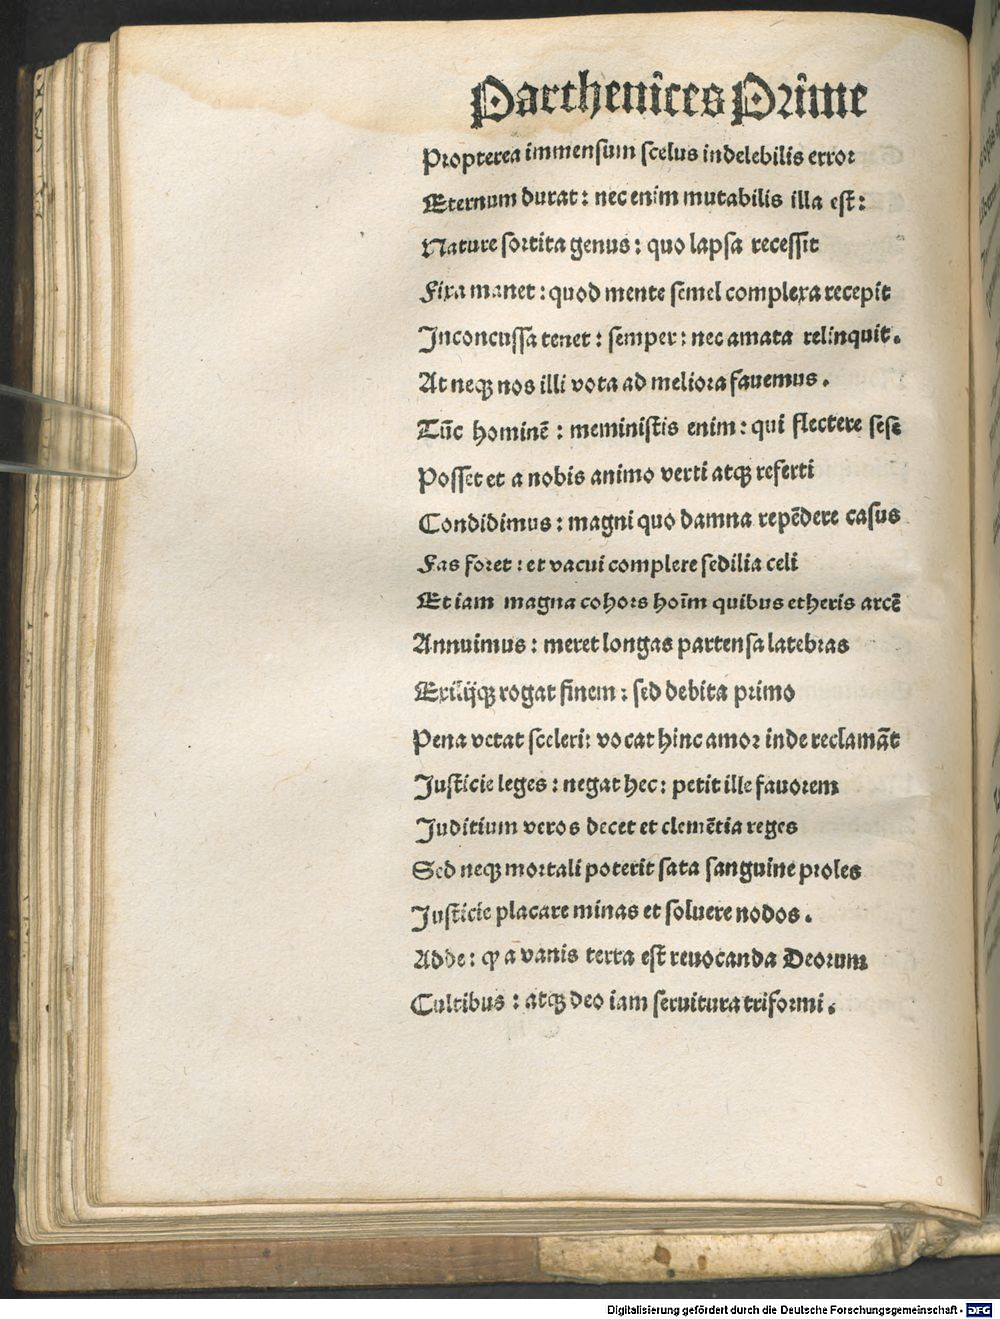 Parthenices Prime
Propterea immensum scelus indelebilis error
Eternum durat: nec enim mutabilis illa est:
Nature sortita genus: quo lapsa recessit
Fixa manet: quod mente semel complexa recepit
Inconcussa tenet: semper: nec amata relinquit.
At neqꝫ nos illi vota ad meliora fauemus.
Tūc hominē: meministis enim: qui flectere sesē
Posset et a nobis animo verti atqꝫ referti
Condidimus: magni quo damna repēdere casus
Fas foret: et vacui complere sedilia celi
Et iam magna cohors hoīm quibus etheris arcē
Annuimus: meret longas partensa latebras
Exilijqꝫ rogat finem: sed debita primo
Pena vetat sceleri: vocat hinc amor inde reclamāt
Justicie leges: negat hec: petit ille fauorem
Juditium veros decet et clemētia reges
Sed neqꝫ mortali poterit sata sanguine proles
Justicie placare minas et soluere nodos.
Adde: ꝙ a vanis terra est reuocanda Deorum
Cultibus: atqꝫ deo iam seruitura triformi.
Digitalisierung gefördert durch die Deutsche Forschungsgemeinschaft - DFG